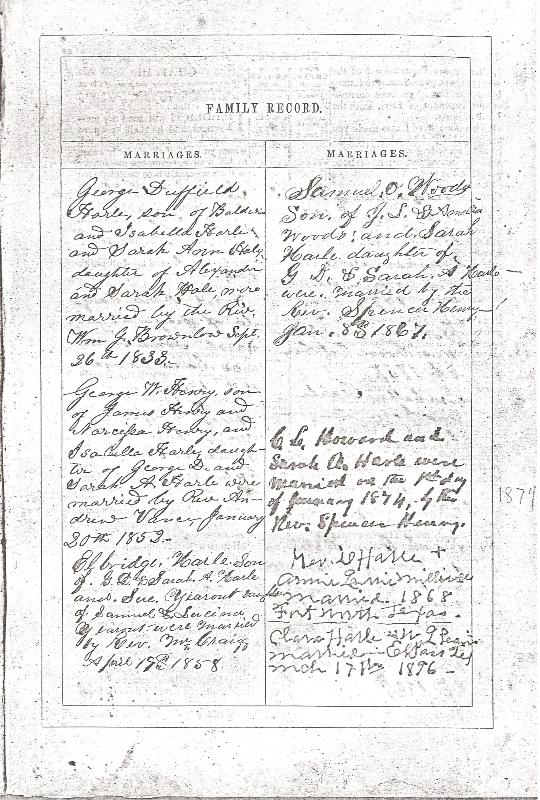 FAMILY RECORD.
MARRIAGES.
George Duffield
Harle, son of Baldwin
and Isabella Harle
and Sarah Ann Hale,
daughter of Alexander
and Sarah Hale, were
married by the Rev.
Wm G. Brownlow Sept.
26th 1833.-
George W. Henry, son
of James Henry and
Narcissa Henry, and
Isabella Harle, daugh-
ter of George D. and
Sarah A. Harle were
married by Rev. An-
drew Vance, January
20th 1852.-
Elbridge Harle Son
of G.D. & Sarah A. Harle
and Sue Yearout daughter
of Samuel &
Yearout were married
by Rev. Craig
April 1858
MARRIAGES.
Samuel O. Woods
Son of J. L. &
Woods: and Sarah
Harle daughter of
G D. & Sarah. A Harle
were married by the
Rev. Spencer Henry
Jan. 8th 1867.
C L. Howard and
Sarah A. Harle were
married on the 1st day
of January 1874, by the
Rev. Spencer Henry.
1874
Harle +
Annie
married 1868
Fort Worth Texas.
Clara Harle
married El Paso Tex
Mch 17th 1896 -